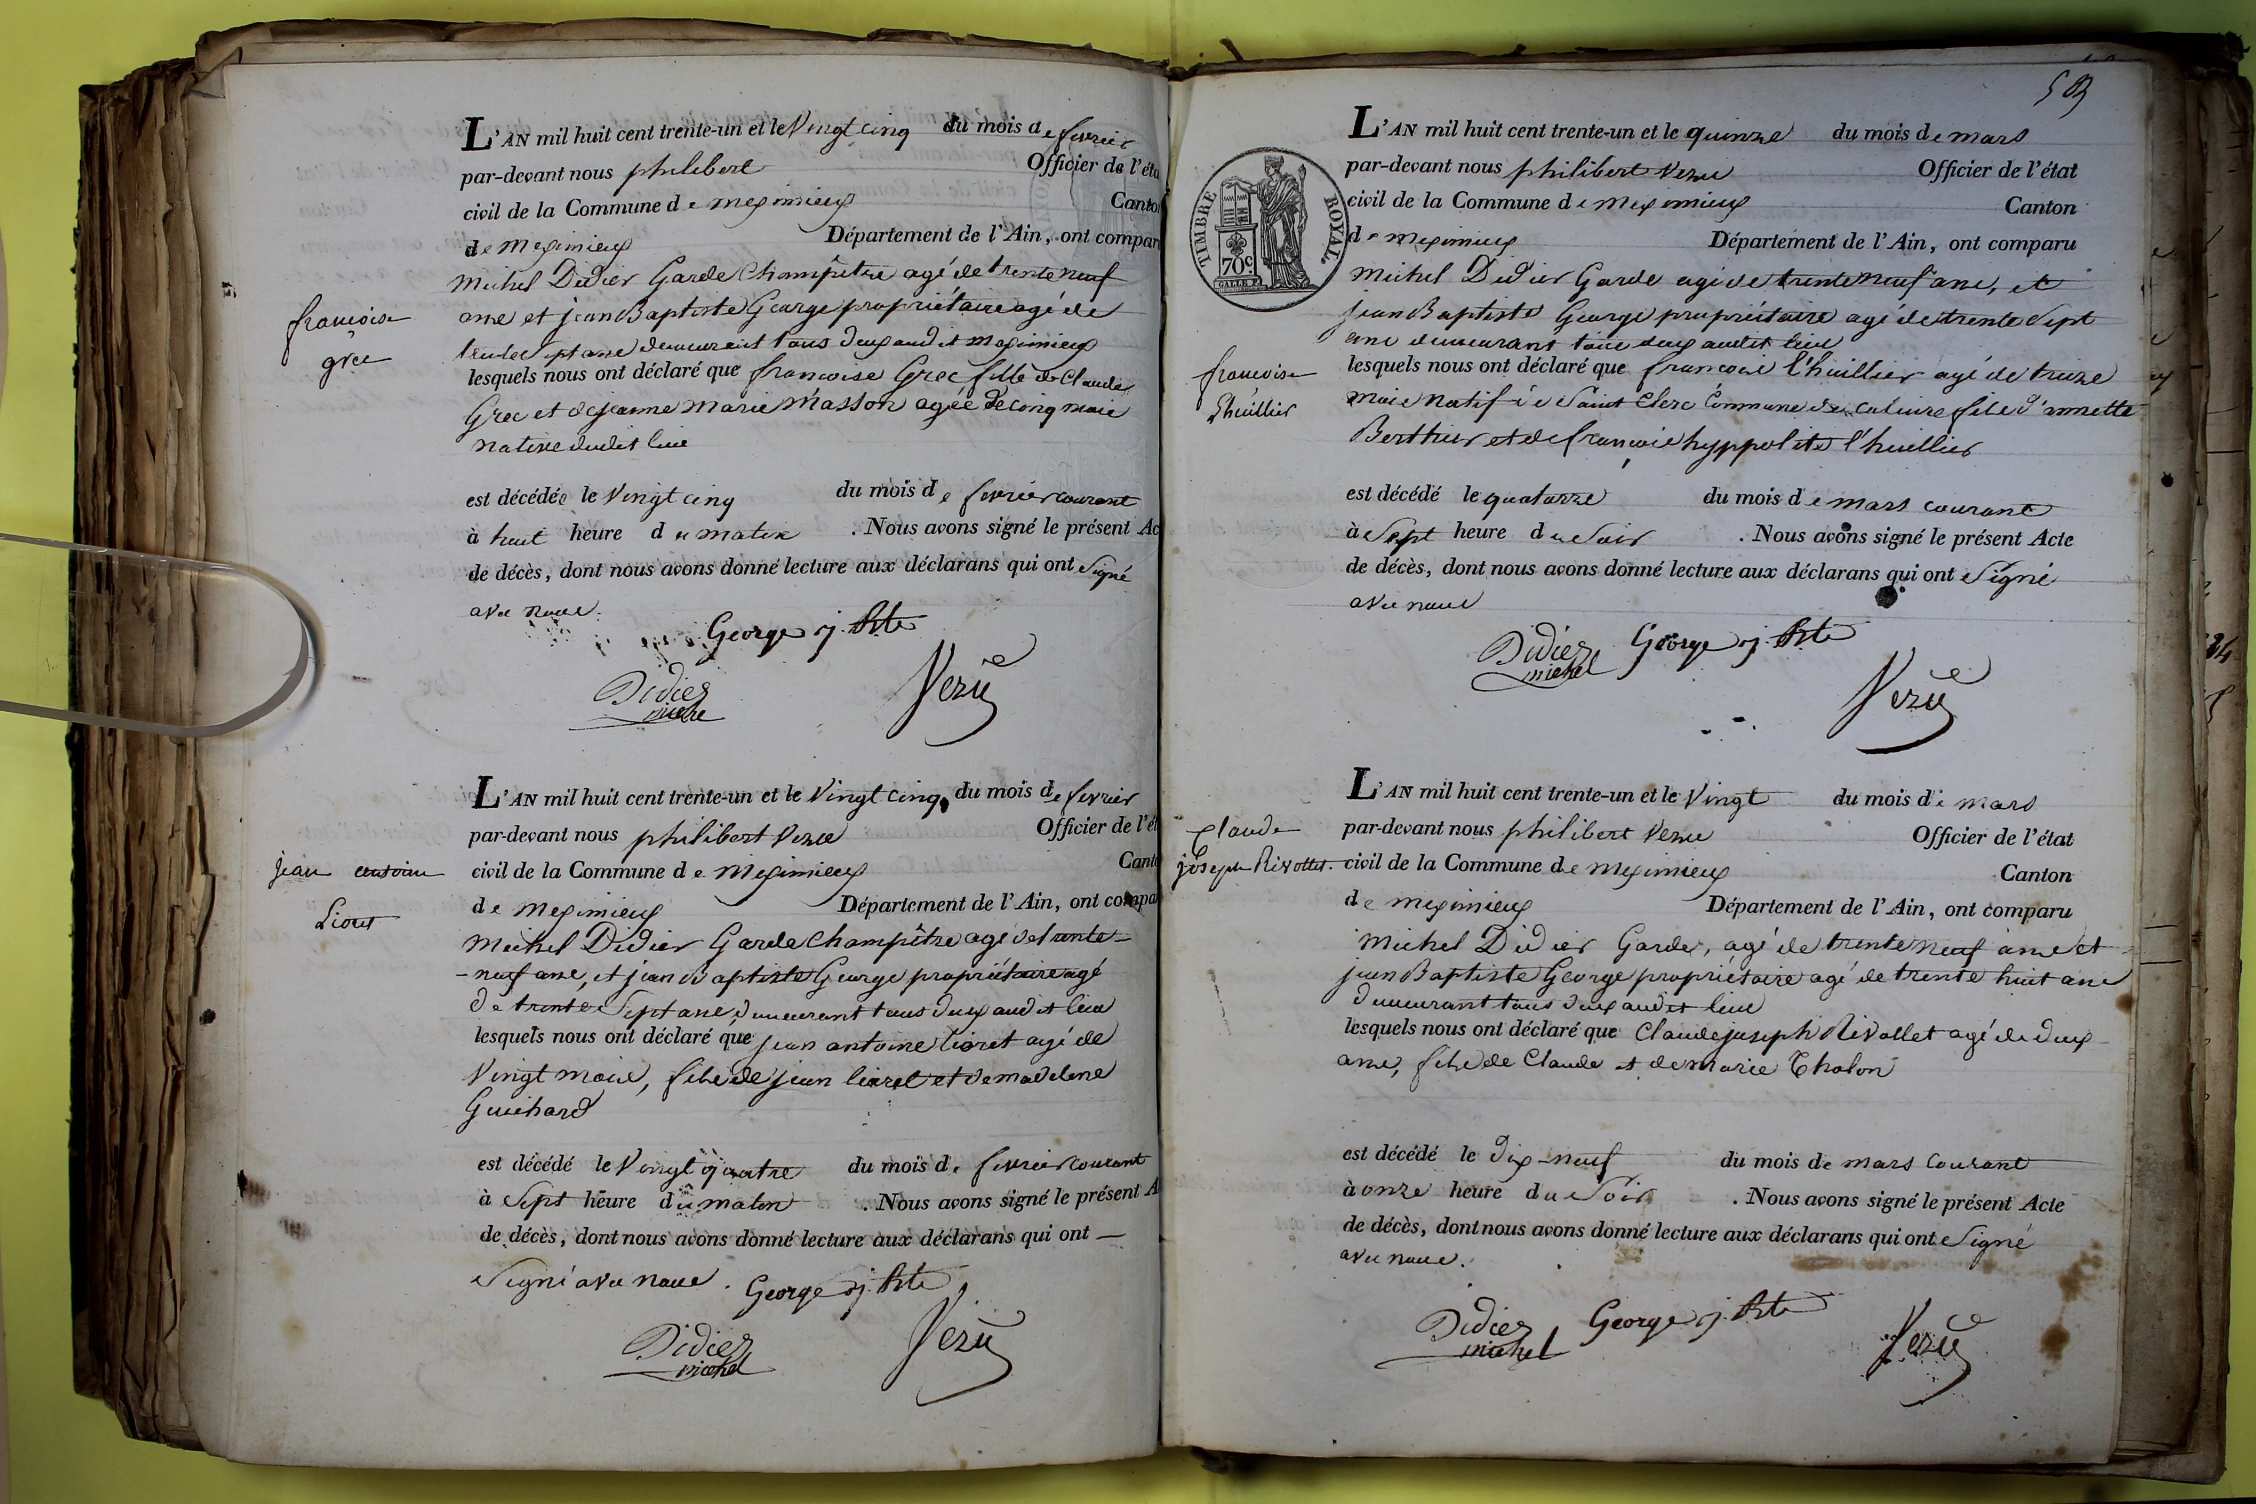 L'AN mil huit cent trente-un et le Vingt cinq du mois de fevrier
par-devant nous philibert Officier de l'éta
civil de la Commune de meximieux Canton
de Meximieux Département de l'Ain, ont compar
Michel Didier Garde Champêtre agé de trente neuf
ans et jean Baptiste George propriétaire agé de
trente Sept ans demeurant tous deux audit Meximieux
françoise
grec
lesquels nous ont déclaré que francoise Grec fille de Claude
Grec et de jeanne Marie Masson agée de cinq mois
native dudit lieu
est décédée le Vingt cinq du mois de fevrier courant
à huit heure du matin . Nous avons signé le présent Ac
de décès, dont nous avons donné lecture aux déclarans qui ont Signé
avec nous.
George j. Bte
Didier
michel
Verü
L'AN mil huit cent trente-un et le Vingt cinq du mois de fevrier
par-devant nous philibert Verü Officier de l'ét
civil de la Commune de Meximieux Canto
jean antoine
Lioret
de meximieux Département de l'Ain, ont compa
Michel Didier Garde Champêtre agé de trente-
-neuf ans, et jean Baptiste George propriétaire agé
de trente Sept ans, demeurant tous deux audit lieu
lesquels nous ont déclaré que jean antoine lioret agé de
Vingt mois, fils de jean lioret et de madelene
Guichard
est décédé le Vingt quatre du mois de fevrier courant
à Sept heure du matin . Nous avons signé le présent A
de décès, dont nous avons donné lecture aux déclarans qui ont —
Signé avec nous.
George j. Bte
Didier
michel
Verü
TIMBRE ROYAL
70c
L'AN mil huit cent trente-un et le quinze du mois de mars
par-devant nous philibert Verü Officier de l'état
civil de la Commune de Meximieux Canton
de meximieux Département de l'Ain, ont comparu
Michel Didier Garde agé de trente neuf ans, et
jean Baptiste George propriétaire agé de trente Sept
ans demeurant tous deux audit lieu
françois
L'huillier
lesquels nous ont déclaré que francois l'huillier agé de treize
mois natif de Saint Clerc Commune de fils d'annette
Berthier et de françois hyppolite l'huillier
est décédé le quatorze du mois de mars courant
à Sept heure du Soir . Nous avons signé le présent Acte
de décès, dont nous avons donné lecture aux déclarans qui ont Signé
avec nous
Didier
michel
George j. Bte
Verü
L'AN mil huit cent trente-un et le Vingt du mois de mars
par-devant nous philibert Verü Officier de l'état
Claude
joseph Rivollet.
civil de la Commune de Meximieux Canton
de meximieux Département de l'Ain, ont comparu
Michel Didier Garde, agé de trente neuf ans et
jean Baptiste George propriétaire agé de trente huit ans
demeurant tous deux audit lieu
lesquels nous ont déclaré que Claude joseph Rivollet agé de deux
ans, fils de Claude et de marie Cholon
est décédé le dix-neuf du mois de mars Courant
à onze heure du Soir . Nous avons signé le présent Acte
de décès, dont nous avons donné lecture aux déclarans qui ont Signé
avec nous.
Didier
michel
George j. Bte
Verü